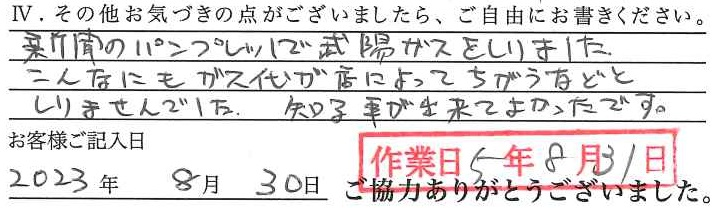 Ⅳ．その他お気づきの点がございましたら、ご自由にお書きください。
新聞のパンフレットで武陽ガスをしりました.
こんなにもガス代が店によってちがうなどと
しりませんでした. 知る事が出来てよかったです。
お客様ご記入日
2023年 8月 30日
作業日 5年8月31日
ご協力ありがとうございました。